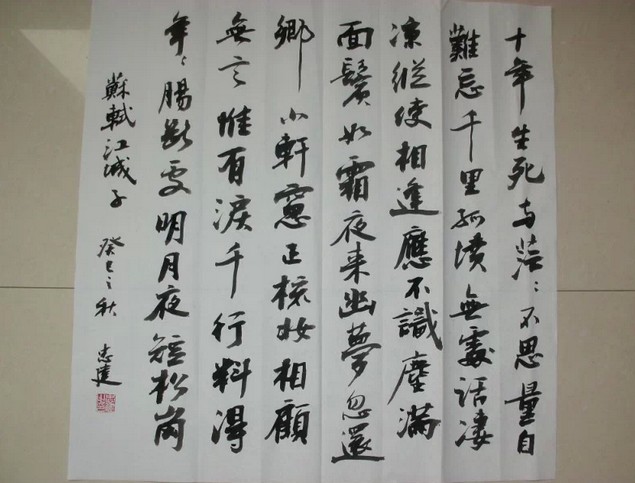 十年生死两茫〻不思量自
難忘千里孤墳無處話凄
凉縱使相逢應不識塵滿
面鬢如霜夜来幽夢忽還
鄉小軒窻正梳妝相顧
無言惟有淚千行料得
年〻腸斷處明月夜短松崗
蘇軾江城子 癸巳之秋 志建